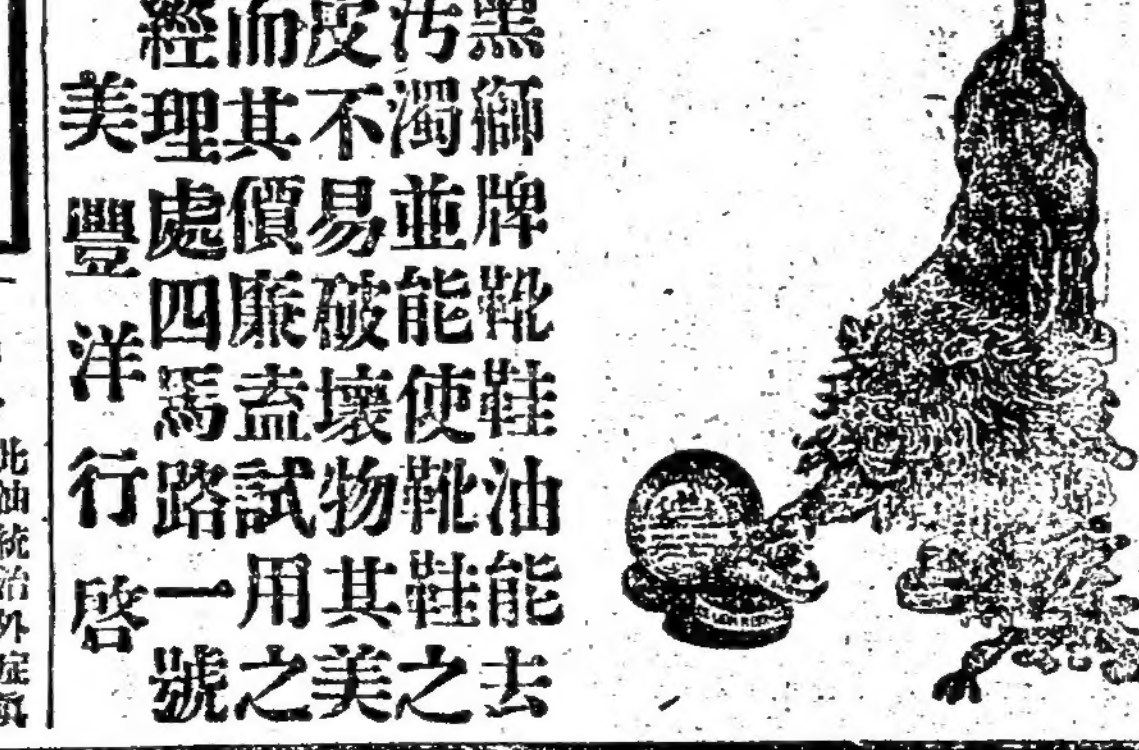 黑獅牌靴鞋油能去
污濁並能使靴鞋之
皮不易破壞物其美
而其價廉盍試用之
經理處四馬路一號
美豐洋行啓
此油統治外症